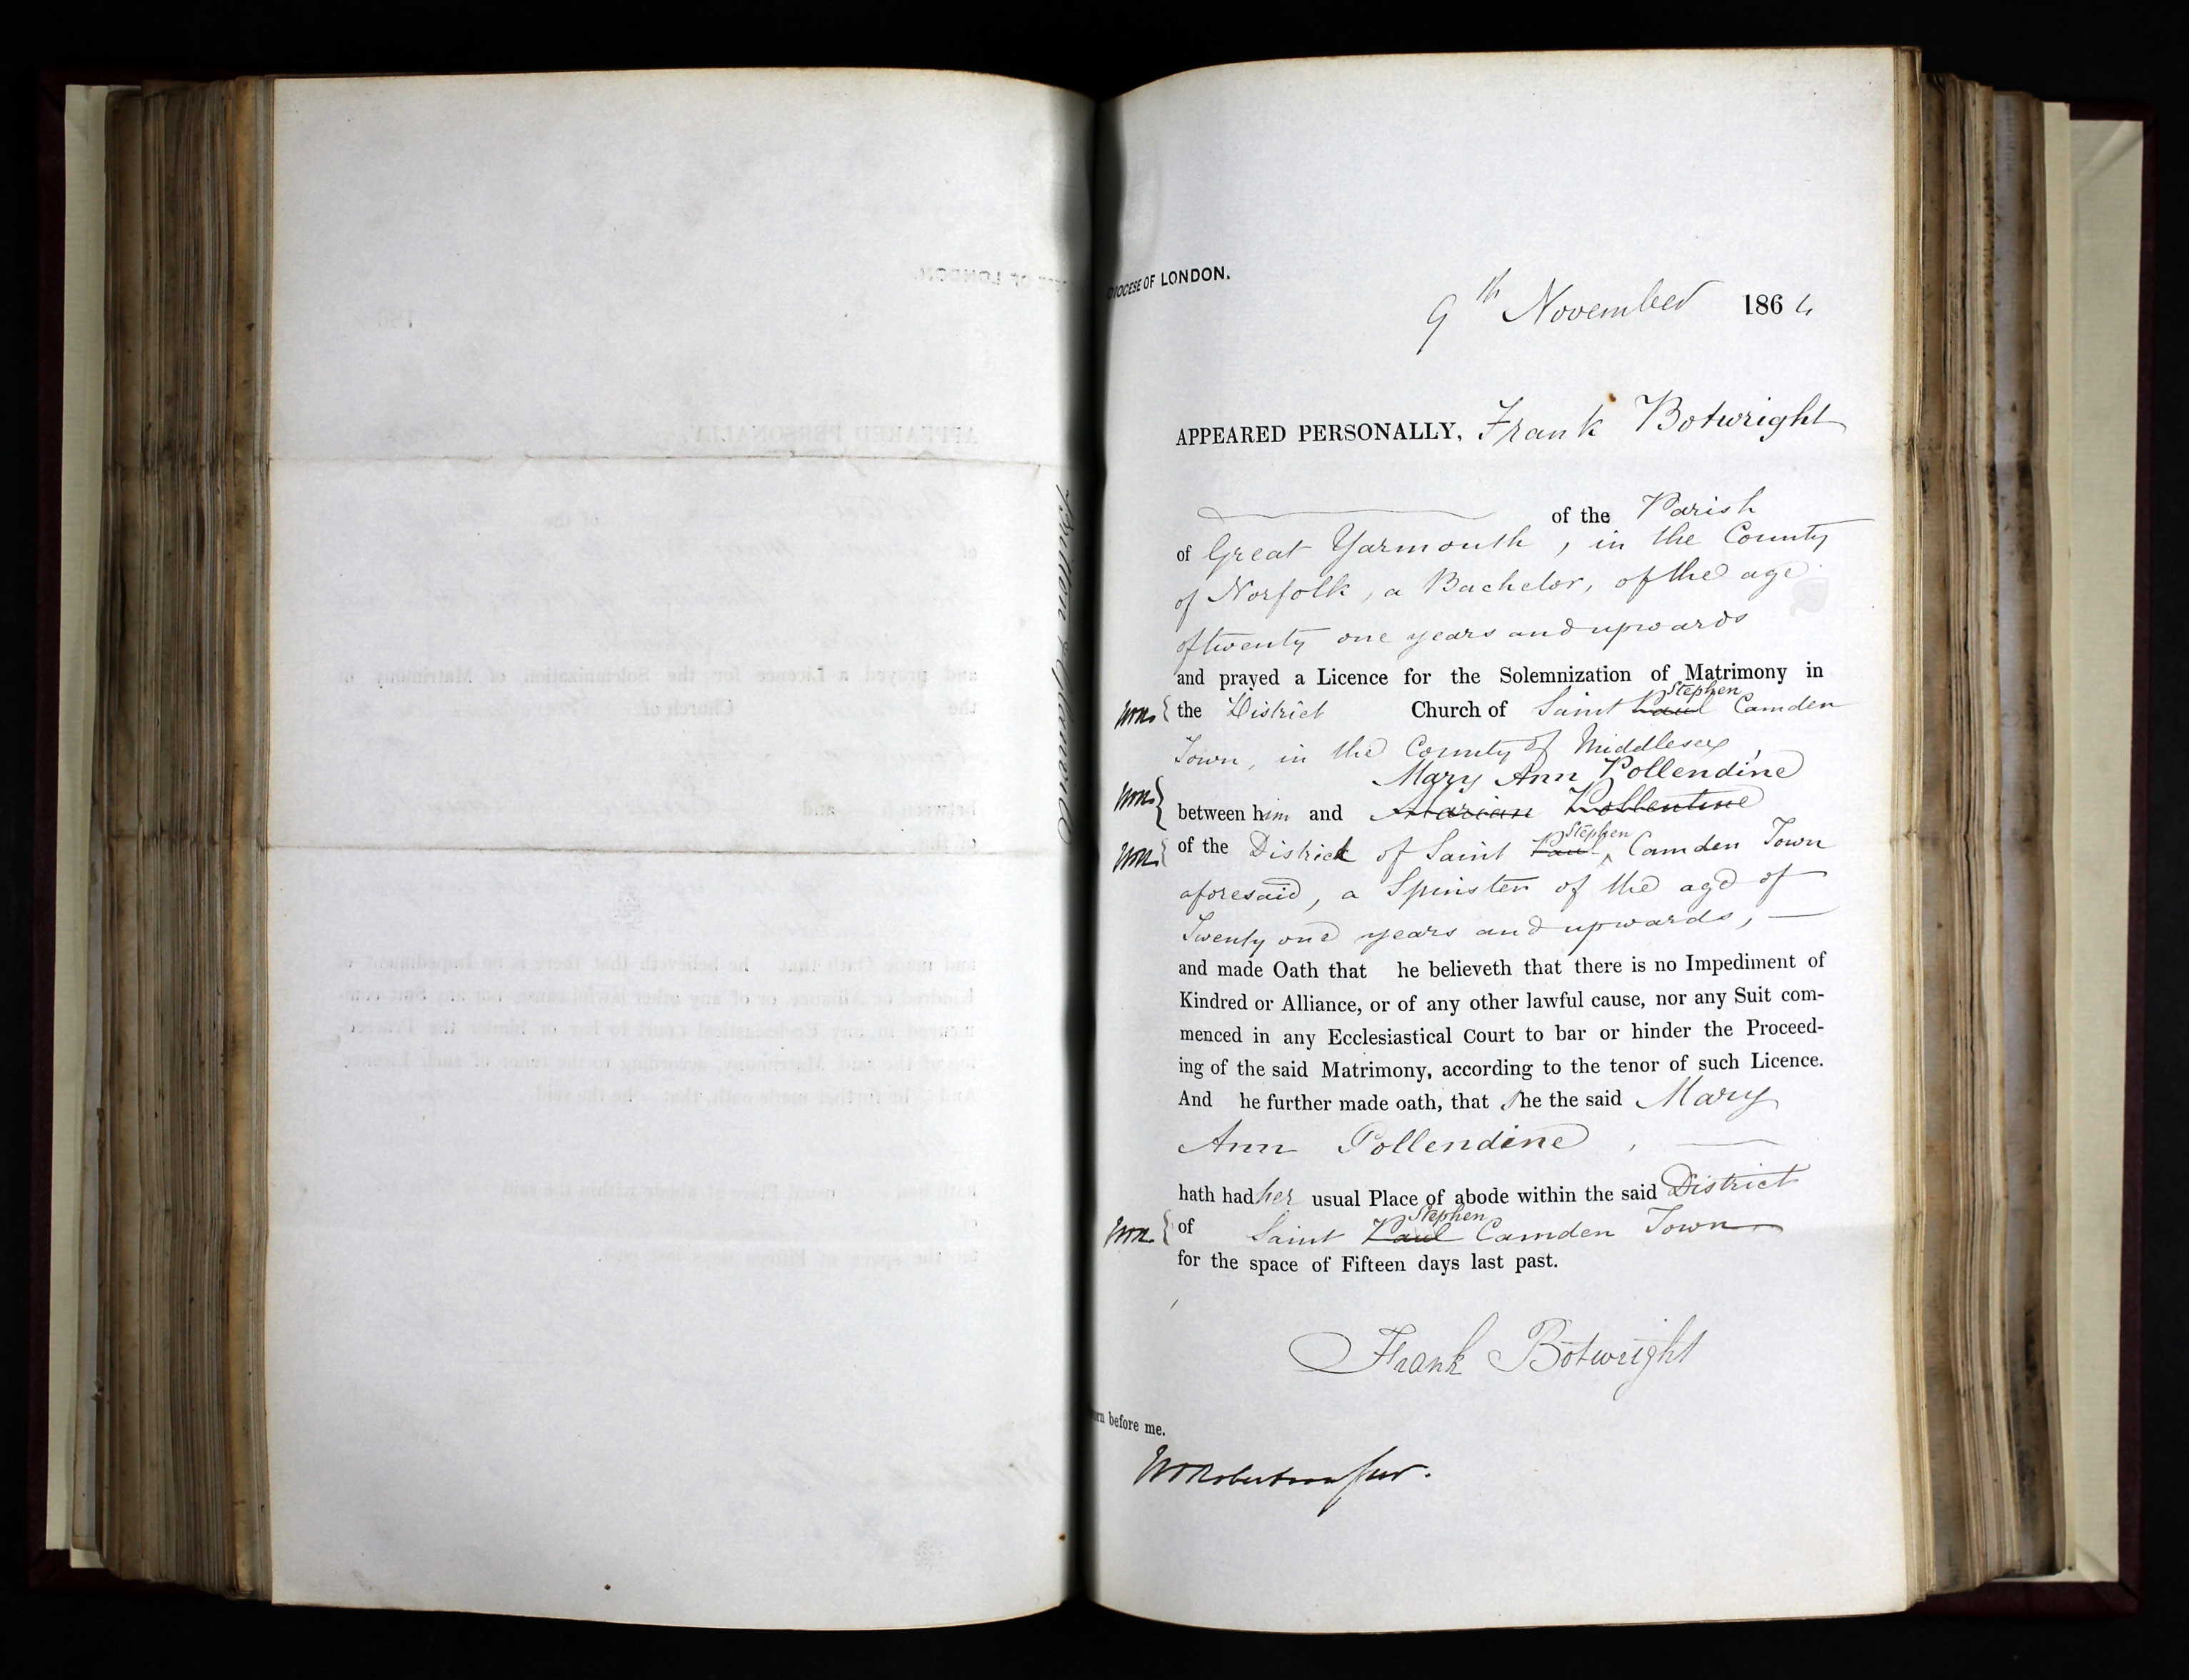 DIOCESE OF LONDON.
9th November 1864
APPEARED PERSONALLY, Frank Botwright
of the Parish
of Great Yarmouth, in the County
of Norfolk, a Bachelor, of the age
of twenty one years and upwards
and prayed a Licence for the Solemnization of Matrimony in
Stephen
the District Church of Saint Paul Camden
Town, in the County of Middlesex,
Mary Ann Pollendine
between him and Marian Pollentine
Stephen
of the District of Saint Paul Camden Town
aforesaid, a Spinster of the age of
Twenty one years and upwards,
and made Oath that he believeth that there is no Impediment of
Kindred or Alliance, or of any other lawful cause, nor any Suit com-
menced in any Ecclesiastical Court to bar or hinder the Proceed-
ing of the said Matrimony, according to the tenor of such Licence.
And he further made oath, that She the said Mary
Ann Pollendine,
hath had her usual Place of abode within the said District
Stephen
of Saint Paul Camden Town
for the space of Fifteen days last past.
Frank Botwright
before me.